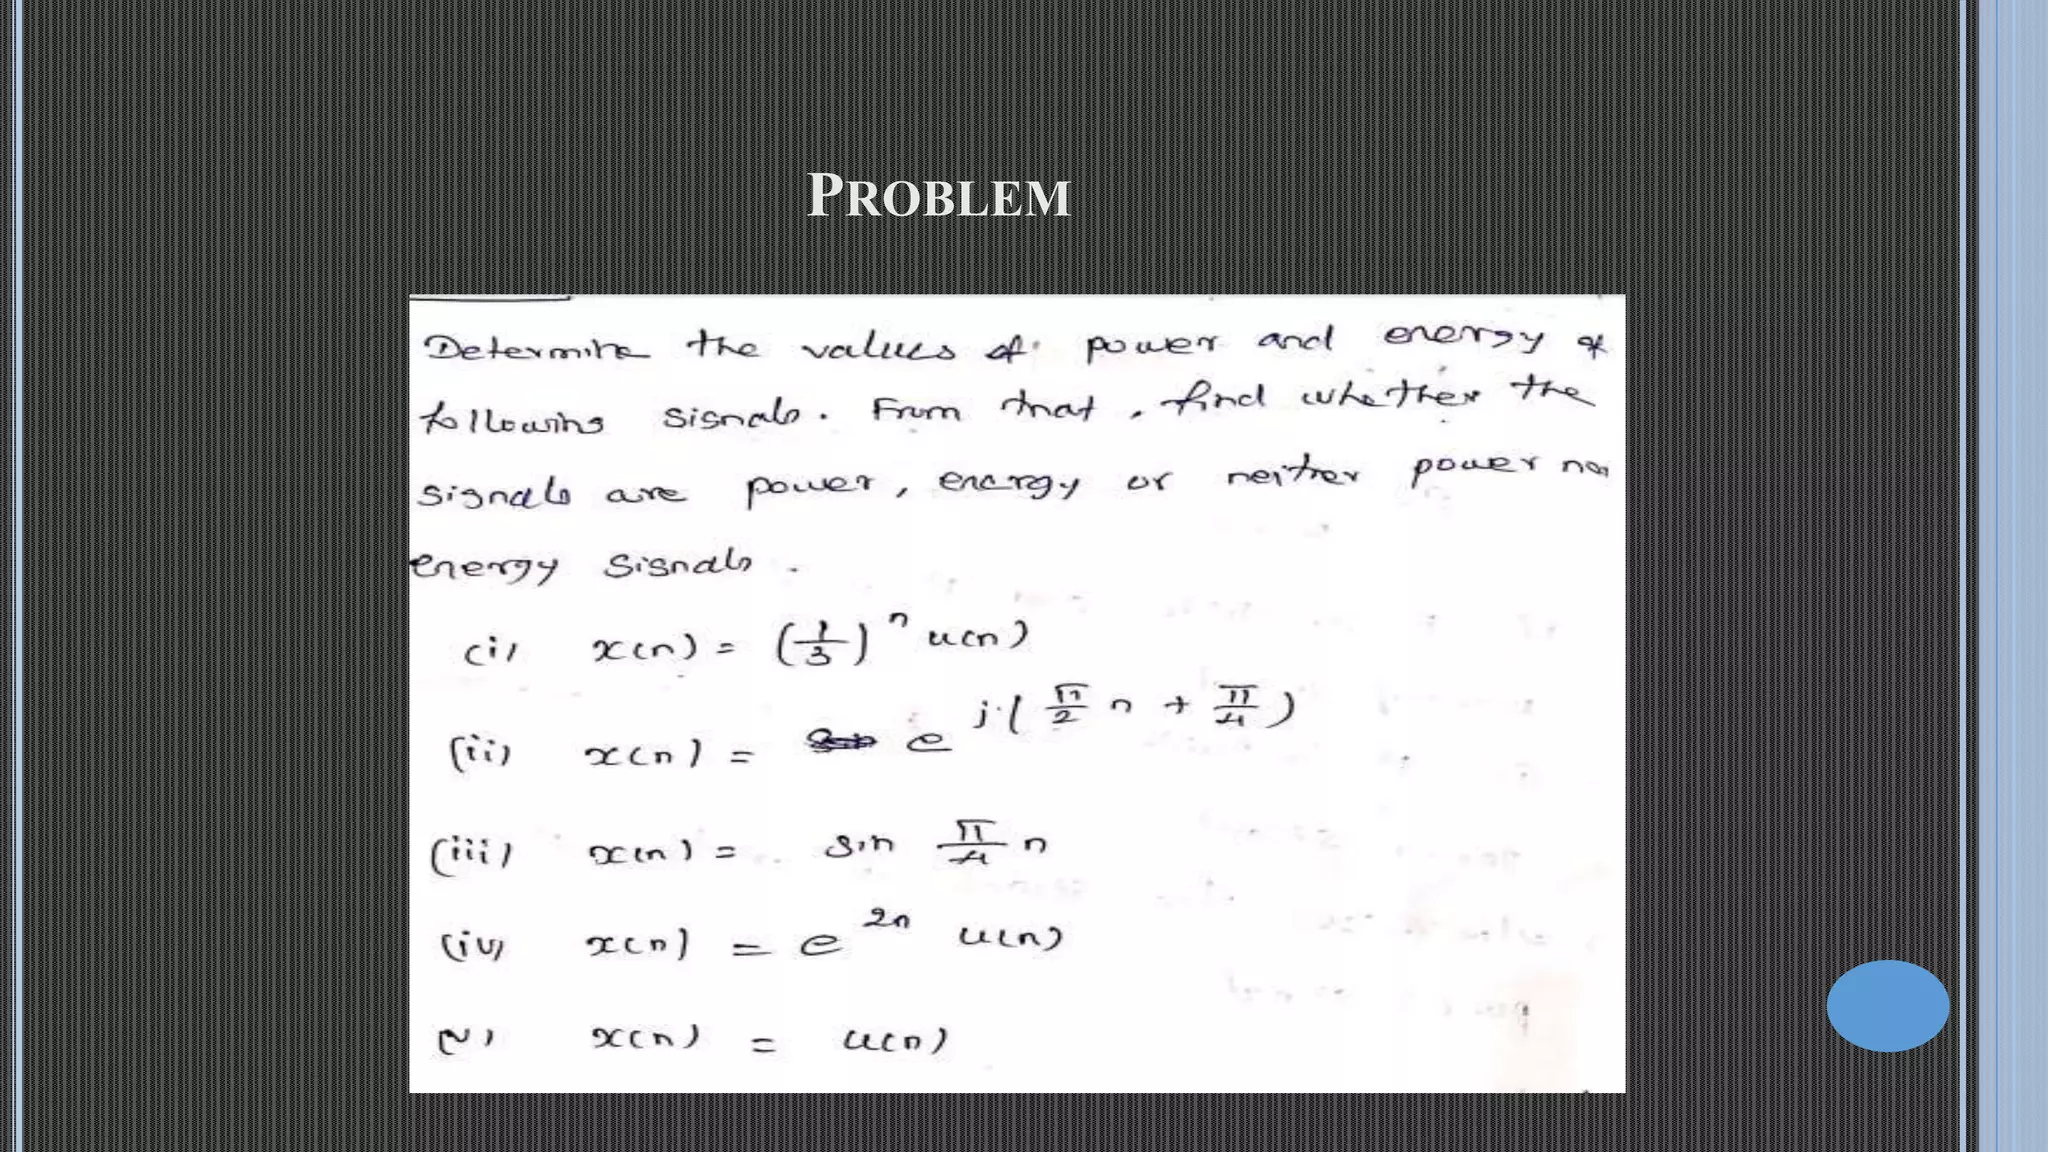 PROBLEM
Determine the values of power and energy of
following signals. From that, find whether the
signals are power, energy or neither power nor
energy signals.
(i) x(n) = (1/3)^n u(n)
(ii) x(n) = e^j(π/2 n + π/4)
(iii) x(n) = sin π/4 n
(iv) x(n) = e^2n u(n)
(v) x(n) = u(n)